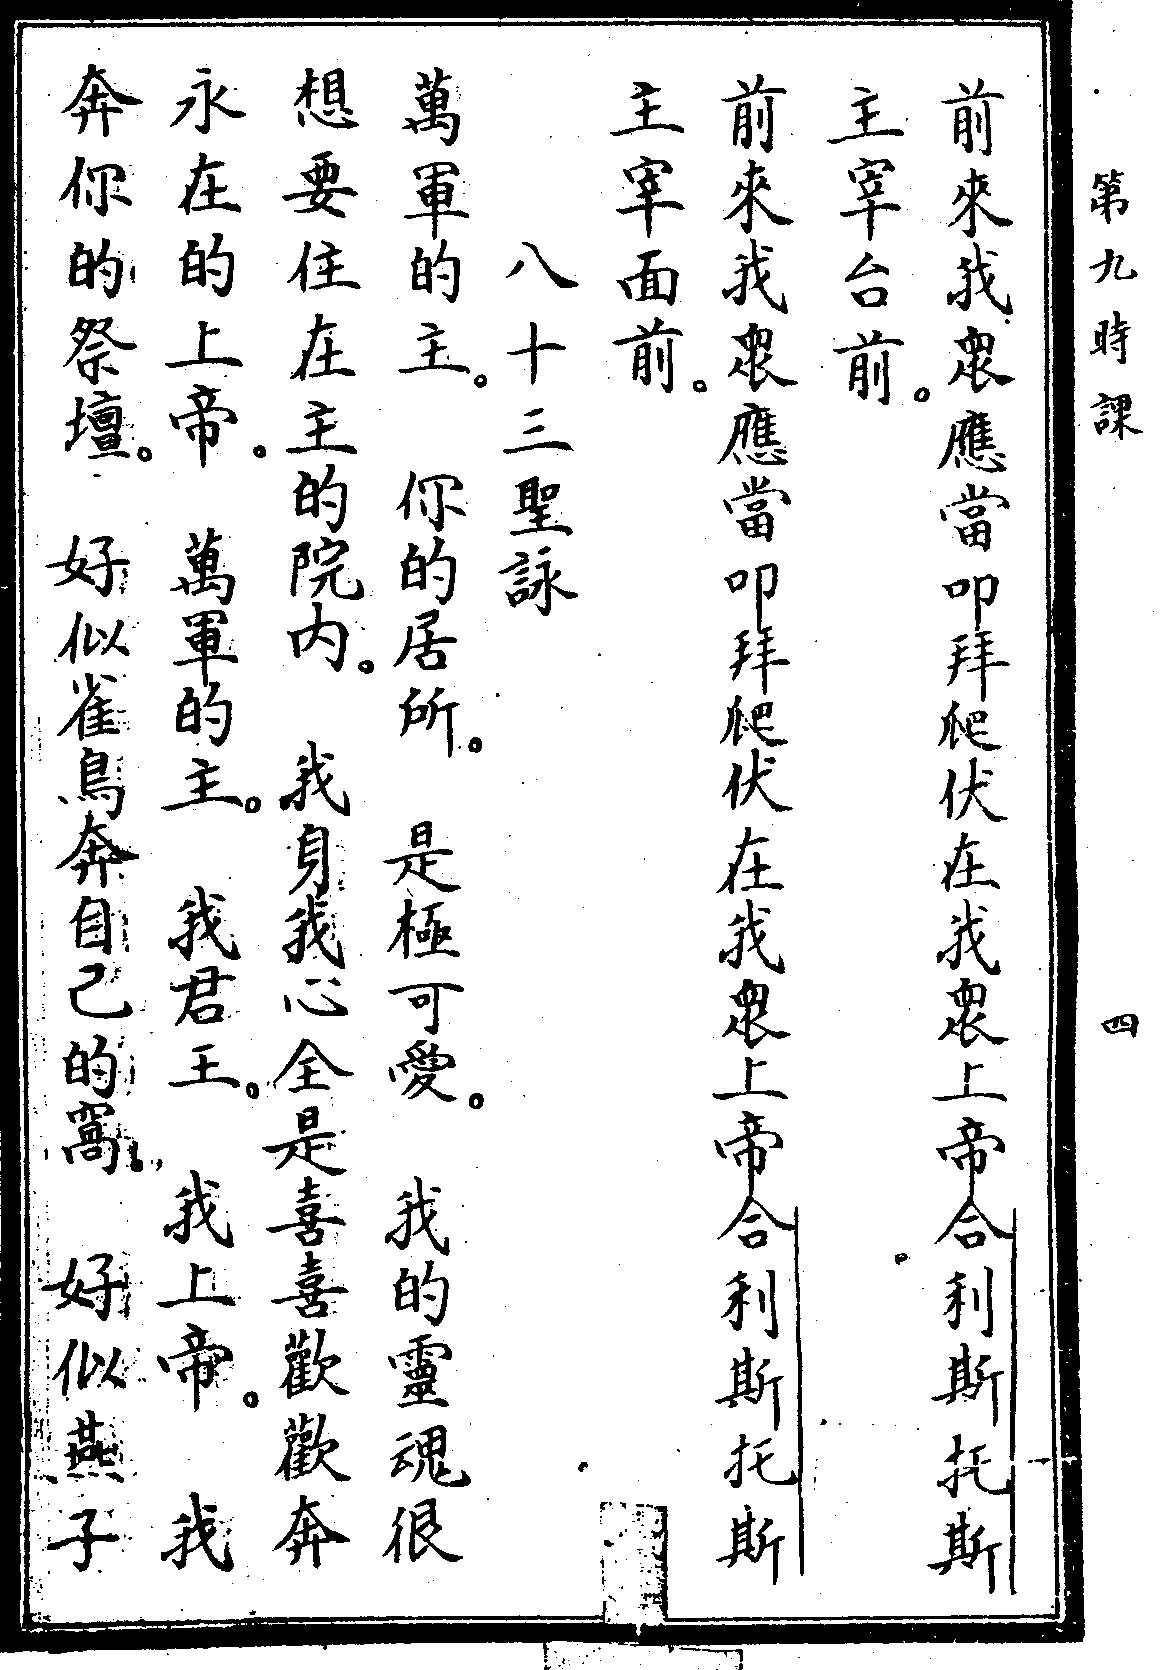 第九時課 四
前來我衆應當叩拜爬伏在我衆上帝合利斯托斯
主宰台前。
前來我衆應當叩拜爬伏在我衆上帝合利斯托斯
主宰面前。
八十三聖詠
萬軍的主。你的居所。是極可愛。我的靈魂很
想要住在主的院内。我身我心全是喜喜歡歡奔
永在的上帝。萬軍的主。我君王。我上帝。我
奔你的祭壇。好似雀鳥奔自己的窩。好似燕子